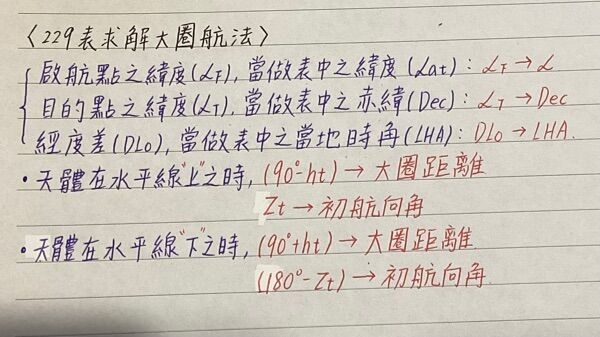 〈229表求解大圈航法〉
啟航點之緯度(LF), 當做表中之緯度(Lat): LF→L
目的點之緯度(LT), 當做表中之赤緯(Dec): LT→Dec
經度差(DLo), 當做表中之當地時角(LHA): DLo→LHA.
•天體在水平線"上"之時, (90°-ht)→大圈距離
Zt→初航向角
•天體在水平線"下"之時, (90°+ht)→大圈距離.
(180°-Zt)→初航向角.